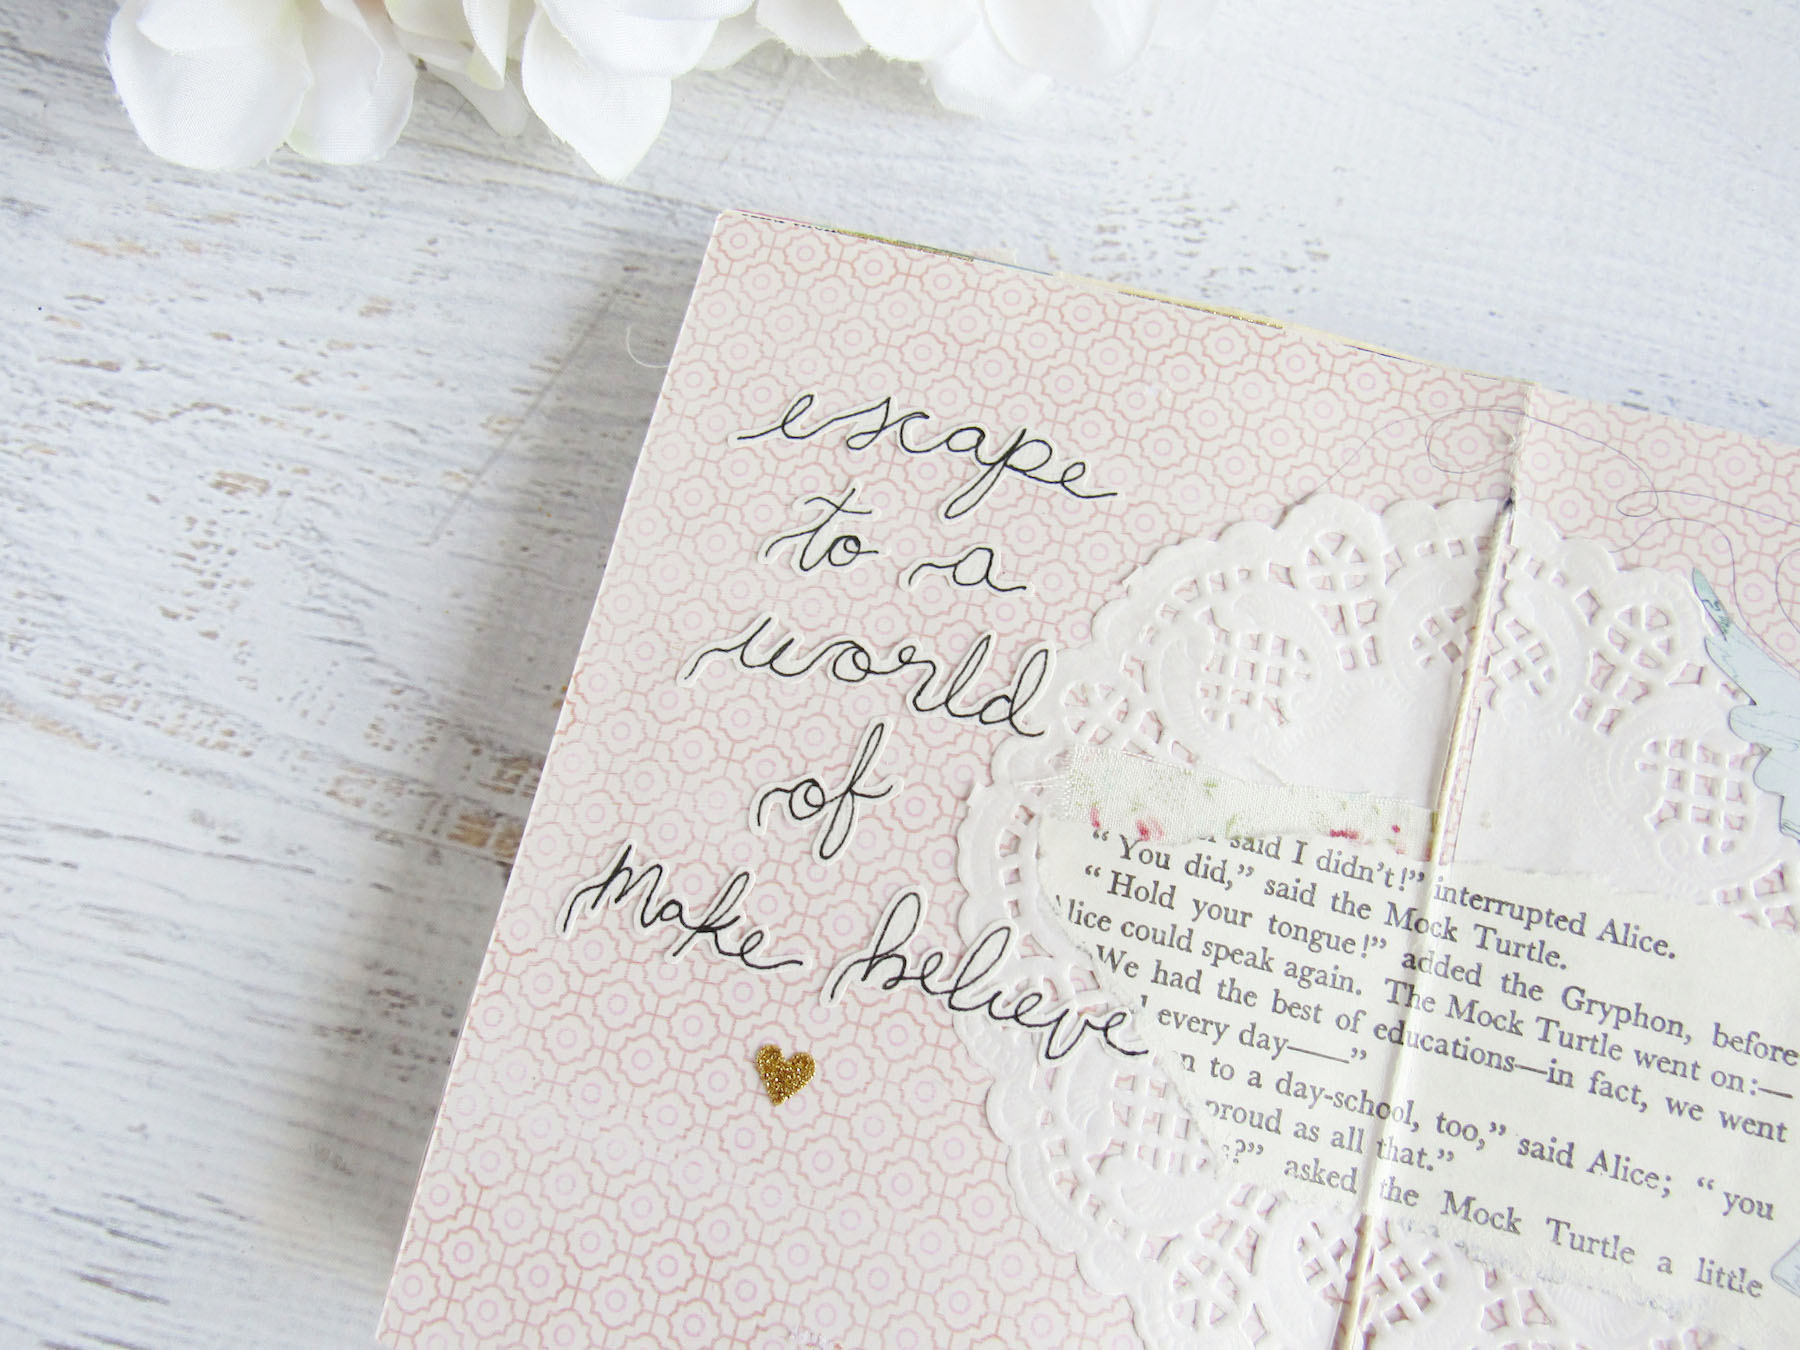 escape
to a
world
of
Make believe
said I didn't!" interrupted Alice.
"You did," said the Mock Turtle.
"Hold your tongue!" added the Gryphon, before
lice could speak again. The Mock Turtle went on:—
"We had the best of educations—in fact, we went
every day——"
to a day-school, too," said Alice; "you
proud as all that."
?" asked the Mock Turtle a little